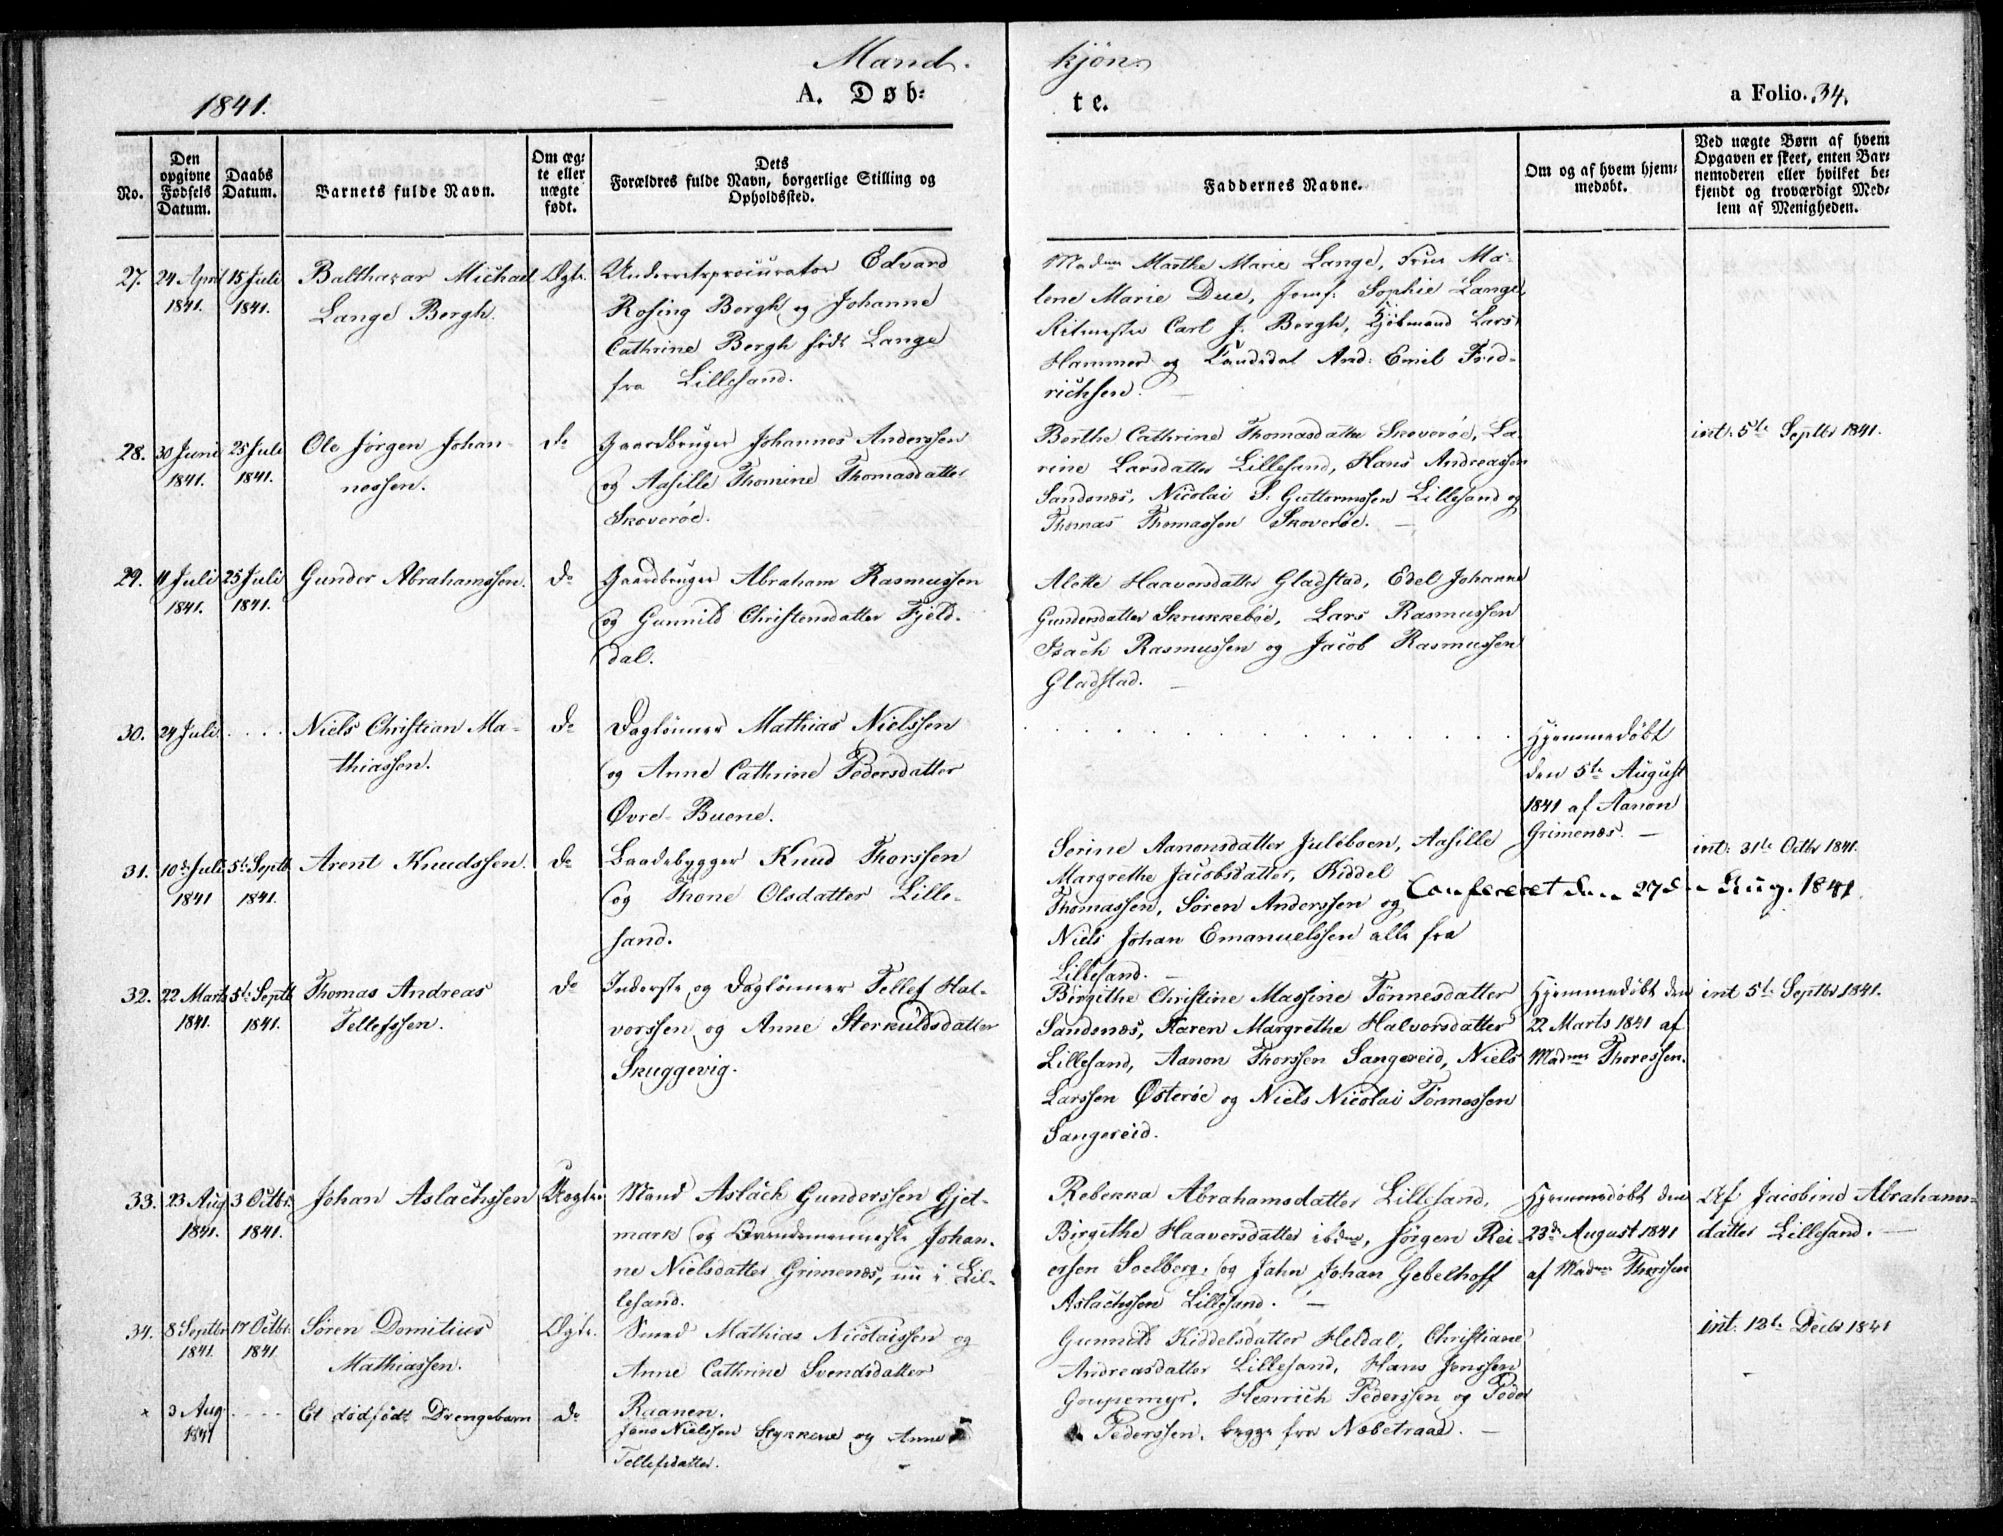 Mand- kjøn.
1841.
A. Døb= te.
a Folio. 34.
No.
Den opgivne Fødsels Datum.
Daabs Datum.
Barnets fulde Navn.
Om æg= te eller uægte født.
Dets Forældres fulde Navn, borgerlige Stilling og Opholdssted.
Faddernes Navne.
Om og af hvem hjem= medøbt.
Ved uægte Børn af hvem Opgaven er skeet, enten Bar= nemoderen eller hvilket be= kjendt og troværdigt Med= lem af Menigheden.
27. 24 April 1841. 15 Juli 1841.
Balthazar Michael
Lange Bergh.
Ægte.
Underretsprocurator Edvard
Rosing Bergh og Johanne
Cathrine Bergh født Lange
fra Lillesand.
Madme Marthe Marie Lange, Frue Ma-
lene Marie Due, Jomf: Sophie Lange,
Ritmester Carl J. Bergh, Kjøbmand Lars
Hammer og Candidat And: Emil Fred-
richsen. —
28. 30 Juni 1841. 25 Juli 1841.
Ole Jørgen Johan-
nessen.
do
Gaardbruger Johannes Anderssen
og Aasille Thomine Thomasdatter
Skoverøe.
Berthe Cathrine Thomasdatter Skoverøe, La-
rine Larsdatter Lillesand, Hans Andreassen
Sandsnæs, Nicolai S. Guttormssen Lillesand og
Thomas Thomassen Skoverøe. —
int: 5te Septbr 1841.
29. 11 Juli 1841. 25 Juli 1841.
Gunder Abrahamssen.
do
Gaardbruger Abraham Rasmussen
og Gunnild Christensdatter Fjeld-
dal.
Alette Haaversdatter Gladstad, Edel Johanne
Gundersdatter Skrukkebøe, Lars Rasmussen
Isach Rasmussen og Jacob Rasmussen
Gladstad. —
30. 24 Juli . . . .
Niels Christian Ma-
thiassen.
do
Daglønner Mathias Nielssen
og Anne Cathrine Pedersdatter
Øvre-Buene.
Hjemmedøbt
den 5te August
1841 af Aanon
Grimenæs. —
31. 10de Juli 1841 5te Septb 1841.
Arent Knudssen.
do
Baadebygger Knud Thorssen
og Thone Olsdatter Lille-
sand.
Serine Aanonsdatter Juleboen, Aasille
Margrethe Jacobsdatter, Kiddel
Thomassen, Søren Anderssen og
Niels Johan Emanuelssen alle fra
Lillesand. —
int: 31te Octbr 1841.
Confereret den 27de Aug. 1841.
32. 22 Marts 1841. 5te Septb 1841.
Thomas Andreas
Tellefssen.
do
Inderste og Daglønner Tellef Hal-
vorssen og Anne Sterkuldsdatter
Skuggevig.
Birgithe Christine Massine Tønnesdatter
Sandsnæs, Karen Margrethe Halvorsdatter
Lillesand, Aanon Thorssen Sangereid, Niels
Larssen Østerøe og Niels Nicolai Tønnessen
Sangereid.
Hjemmedøbt den
22 Marts 1841 af
Madme Thoressen.
int 5te Septbr 1841.
33. 23 Aug 1841. 3 Octbr. 1841.
Johan Aslachssen
Uægte.
Mand Aslach Gunderssen Gjet-
mark og Qvindemenneske Johan-
ne Nielsdatter Grimenæs, nu i Lil-
lesand.
Rebekka Abrahamsdatter Lillesand,
Birgithe Haaversdatter ibdm, Jørgen Rei-
ersen Soelberg, og Jahn Johan Gebelhoff
Aslachssen Lillesand. —
Hjemmedøbt den
23de August 1841
af Madme Thorssen
Af Jacobine Abrahams-
datter Lillesand. —
34. 8 Septbr 1841. 17 Octbr. 1841
Søren Domitius
Mathiassen.
Ægte.
Smed Mathias Nicolaissen og
Anne Cathrine Svendsdatter
Ruanen.
Gunnild Kiddelsdatter Heldal, Christiane
Andreasdatter Lillesand, Hans Jenssen
Goupemyr, Henrich Pederssen og Peder
Pederssen, begge fra Næbetraae. —
int. 12te Decbr 1841
3 Aug 1841 - - - -
Et dødfødt Drengebarn
do
Jens Nielssen Stykkene og Anne
Tellefsdatter.